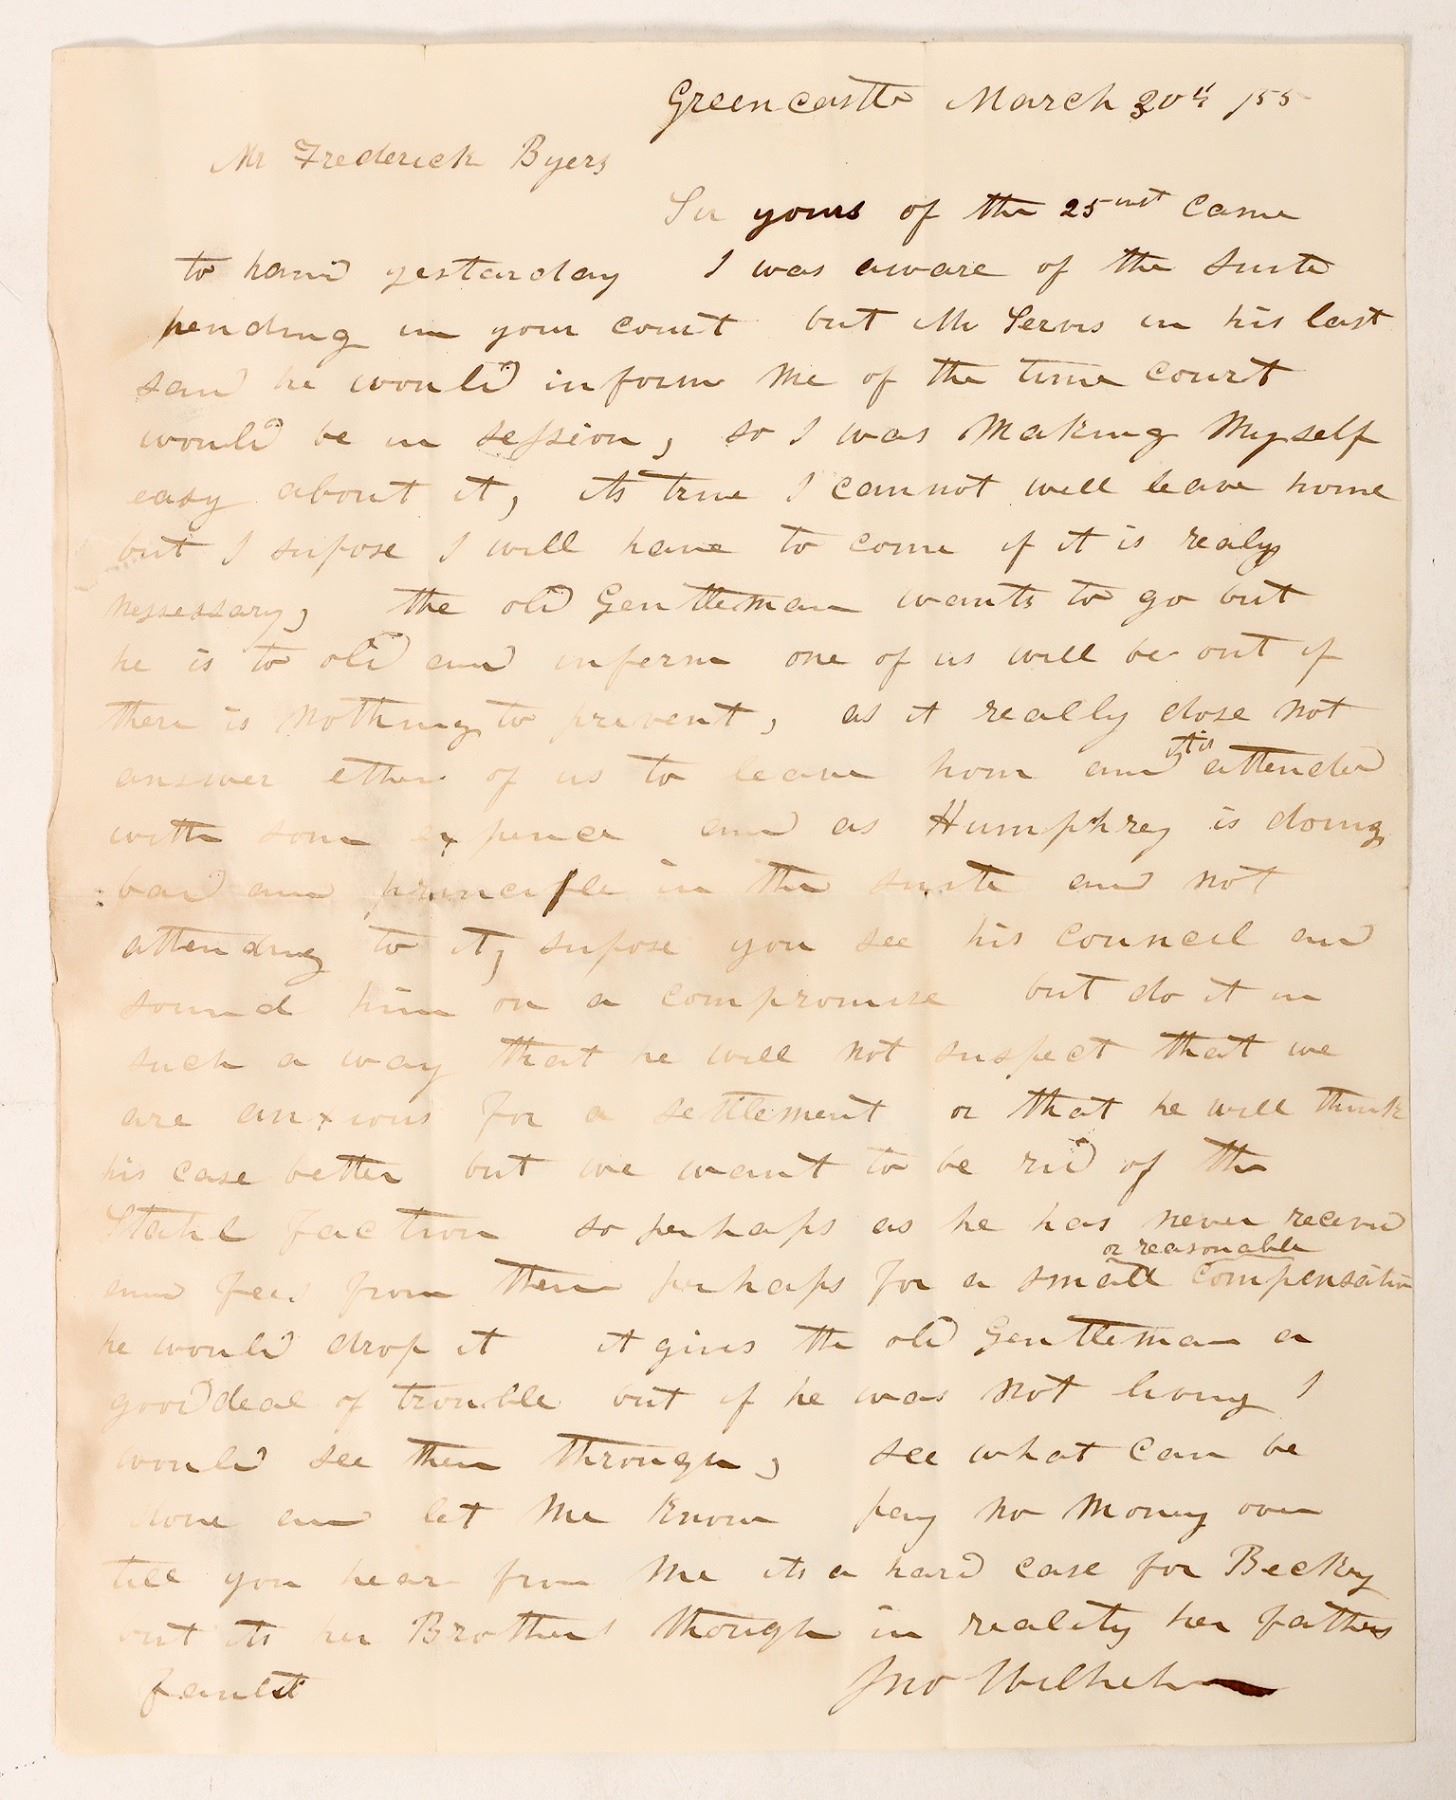 Greencastle March 30th /55
Mr Frederick Byers
Sir yours of the 25 inst came
to hand yestarday I was aware of the suite
pending in your court but Mr Servis in his last
said he would inform me of the time court
would be in session, so I was making myself
easy about it, its true I cannot well leave home
but I supose I will have to come if it is realy
nessessary, the old Gentleman wants to go but
he is to old and inferm one of us will be out if
there is nothing to prevent, as it really dose not
answer ether of us to leave hom and it is attended
with som expence and as Humphrey is doing
bad and principle in the suite and not
attending to it, supose you see his council and
sound him on a compromise but do it in
such a way that he will not suspect that we
are anxious for a settlement or that he will think
his case better but we want to be rid of the
Stahl faction so perhaps as he has never received
and fees from them perhaps for a small or reasonable compensation
he would drop it it gives the old Gentleman a
good deal of trouble but if he was not living I
would see them through, see what can be
done and let me know pay no money over
till you hear from me its a hard case for Becky
but its her Brothers though in reality her fathers
fault Jno Wilhelm